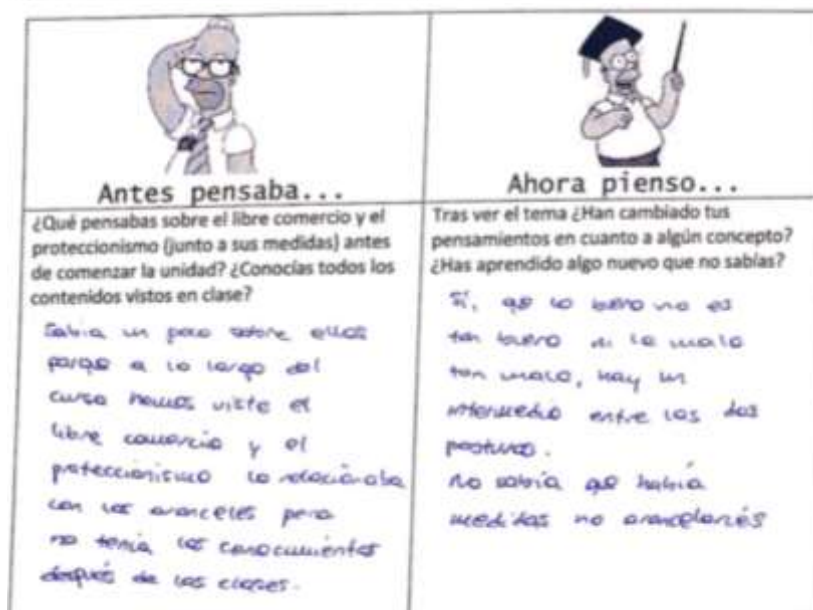 Antes pensaba...
¿Qué pensabas sobre el libre comercio y el
proteccionismo (junto a sus medidas) antes
de comenzar la unidad? ¿Conocías todos los
contenidos vistos en clase?
Sabía un poco sobre ellos
porque a lo largo del
curso hemos visto el
libre comercio y el
proteccionismo lo relacionaba
con los aranceles pero
no tenía los conocimientos
después de las clases.
Ahora pienso...
Tras ver el tema ¿Han cambiado tus
pensamientos en cuanto a algún concepto?
¿Has aprendido algo nuevo que no sabías?
Sí, que lo bueno no es
tan bueno ni lo malo
tan malo, hay un
intermedio entre las dos
posturas.
No sabía que había
medidas no arancelariés